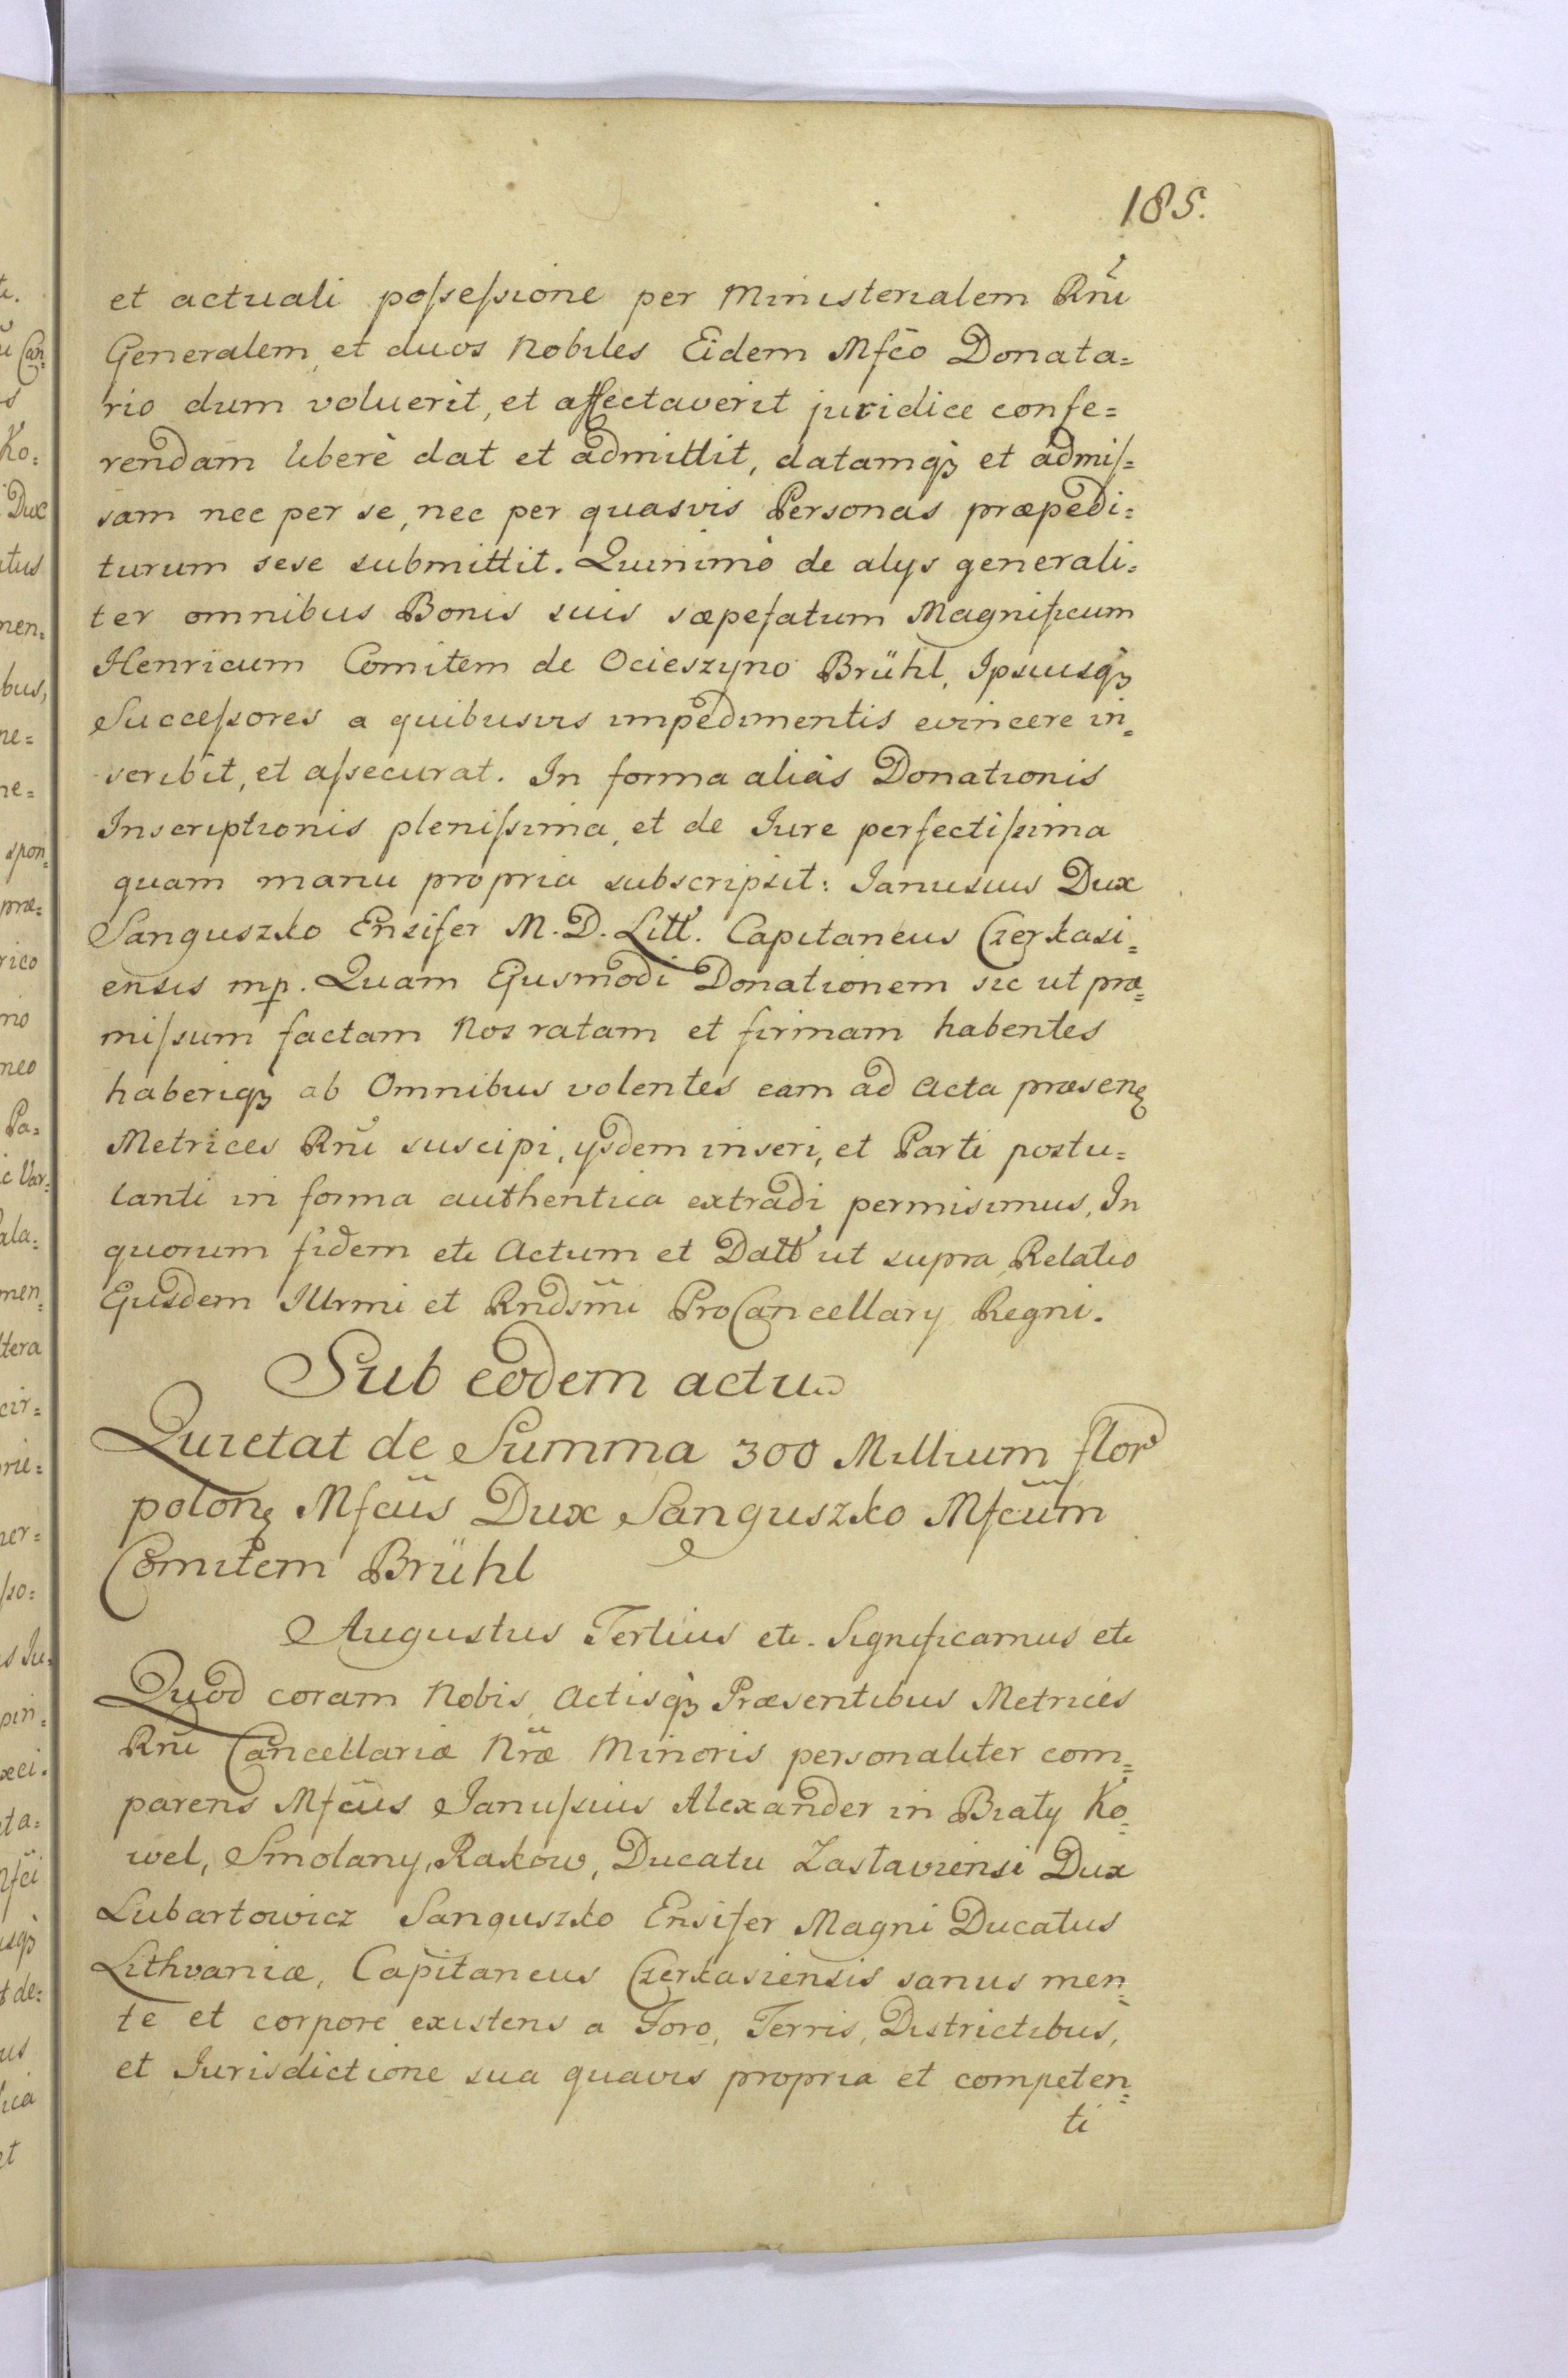 185.
et actuali possessione per Ministerialem Rñi
Generalem, et duos Nobiles Eidem Mfco Donata=
rio dum voluerit, et affectaverit juridice confe=
rendam liberè dat et admittit, datamq3 et admis=
sam nec per se, nec per quasvis Personas præpedi=
turum sese submittit. Quinimò de alys generali=
ter omnibus Bonis suis sæpefatum Magnificum
Henricum Comitem de Ocieszyno Brühl, Ipsiusq3
Successores a quibusvis impedimentis evincere in=
scribit, et assecurat. In forma aliàs Donationis
Inscriptionis plenissima, et de Jure perfectissima
quam manu propria subscripsit: Janusius Dux
Sanguszko Ensifer M. D. Litt. Capitaneus Czerkasi=
ensis mp. Quam Ejusmodi Donationem sic ut præ=
missum factam Nos ratam et firmam habentes
haberiq3 ab Omnibus volentes eam ad Acta præsen
Metrices Rñi suscipi, ysdem inseri, et Parti postu=
lanti in forma authentica extradi permisimus, In
quorum fidem etc Actum et Datt ut supra Relatio
Ejusdem Illrmi et Rndsmi ProCancellary Regni.
Sub eodem actu
Quietat de Summa 300 Millium flor
polon Mfcus Dux Sanguszko Mfcum
Comitem Brühl
Augustus Tertius etc. Significamus etc
Quod coram Nobis, Actisq3 Præsentibus Metrices
Rñi Cancellariæ Nræ Minoris personaliter com=
parens Mfcus Janussius Alexander in Biały Ko=
wel, Smolany, Rakow, Ducatu Zaslaviensi Dux
Lubartowicz Sanguszko Ensifer Magni Ducatus
Lithvaniæ, Capitaneus Czerkasiensis sanus men=
te et corpore existens a Foro, Terris, Districtibus,
et Jurisdictione sua quavis propria et competen=
ti